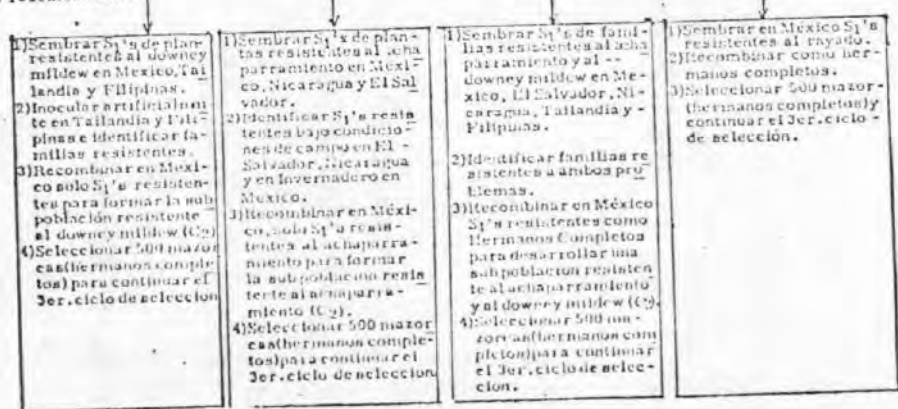 1)Sembrar S1's de plan-
resistentes al downey
mildew en Mexico, Tai
landia y Filipinas.
2)Inocular artificialmn
te en Tailandia y Fili-
pinas e identificar fa-
milias resistentes.
3)Recombinar en Mexi-
co solo S1's resisten-
tes para formar la sub
población resistente
al downey mildew (C2)
4)Seleccionar 500 mazor
cas(hermanos comple-
tos) para continuar el
3er. ciclo de seleccion
1)Sembrar S1's de plan-
tas resistentes al acha
parramiento en Mexi-
co, Nicaragua y El Sal
vador.
2)Identificar S1's resis
tentes bajo condicio-
nes de campo en El -
Salvador, Nicaragua
y en Invernadero en
Mexico.
3)Recombinar en Méxi-
co, solo S1's resis-
tentes al achaparra-
miento para formar
la subpoblacion resis
tente al achaparra-
miento (C2).
4)Seleccionar 500 mazor
cas(hermanos comple-
tos)para continuar el
3er. ciclo de seleccion
1)Sembrar S1's de fami-
lias resistentes al acha
parramiento y al --
downey mildew en Me-
xico, El Salvador, Ni-
caragua, Tailandia y -
Filipinas.
2)Identificar familias re
sistentes a ambos pro
blemas.
3)Recombinar en México
S1's resistentes como
Hermanos Completos
para desarrollar una
subpoblacion resisten
te al achaparramiento
y al downey mildew (C2).
4)Seleccionar 500 ma-
zorcas(hermanos com
pletos)para continuar
el 3er. ciclo de selec-
cion.
1)Sembrar en México S1's
resistentes al rayado.
2)Recombinar como her-
manos completos.
3)Seleccionar 500 mazor-
(hermanos completos)y
continuar el 3er. ciclo -
de selección.